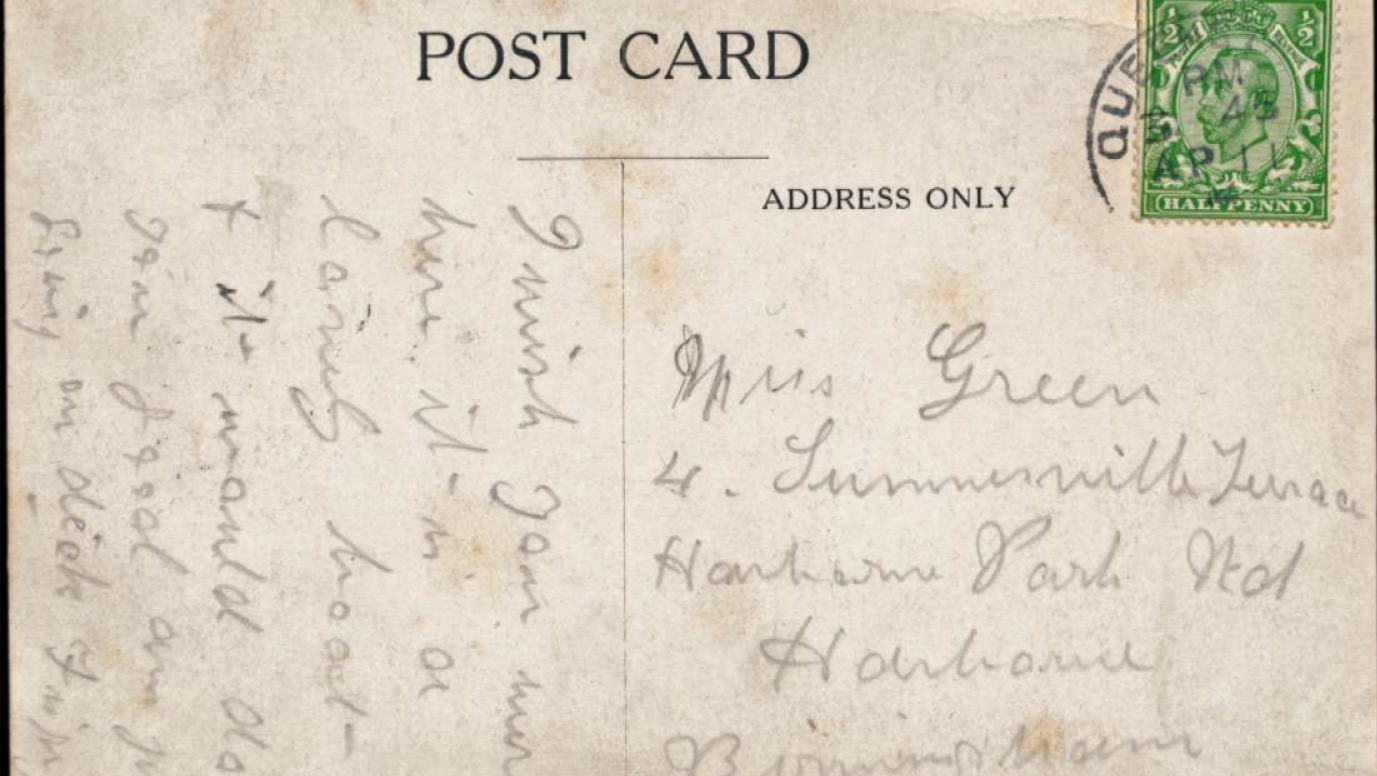 POST CARD
ADDRESS ONLY
½ ½
HALFPENNY
QUE
PM
3 45
AP 11
Miss Green
4. Summerville Terrace
Harborne Park Rd
Harborne
Birmingham
I wish you wer
here. it is a
lovely boat
& it would do
you good am
living on deck